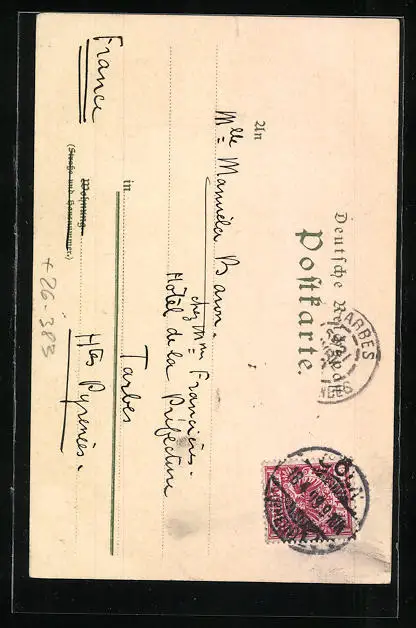 Deutsche Reichspost
Postkarte.
TARBES
An
Mlle Manuela Baron.
chez Mme Francière.
Hôtel de la Préfecture
in
Tarbes
Wohnung
(Straße und Hausnummer)
Htes Pyrénées.
France
+26-383